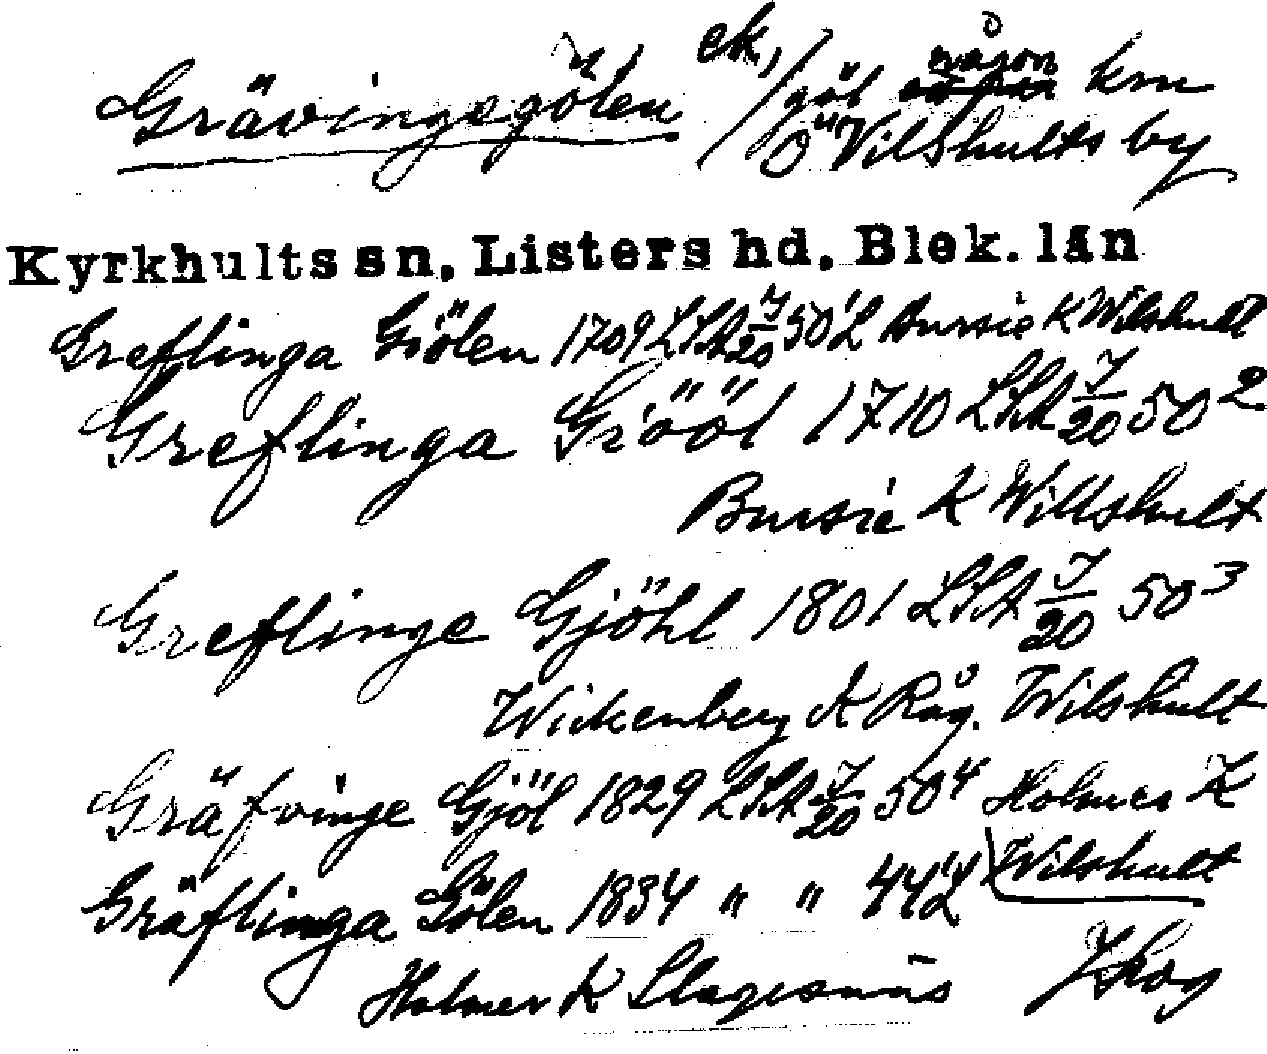 Grävingsgölen ek, / göl någon km
Ö Vilshults by
Kyrkhults sn, Listers hd, Blek. län
Greflinga Giölen 1709 LSA J/20 50¹⁄₂ Bursie K Wilshult
Greflinga Giööl 1710 LSA J/20 50²
Bursie K Willshult
Greflinge Gjöhl 1801 LSA J/20 50³
Wickenberg K Råg. Wilshult
Gräfvinge Gjöl 1829 LSA J/20 50⁴ Holmer K
Wilshult
Gräflinga Gölen 1834 " " 44
Holmer K Slagesnäs J Skog